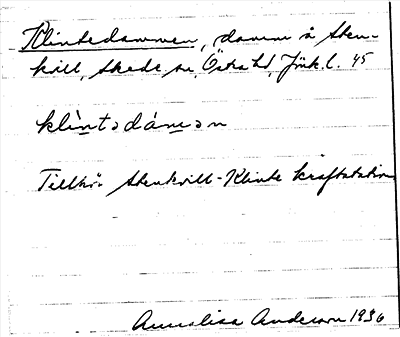 Klintedammen, damm å Sten-
kvill, Skede sn, Östra hd, Jönk. l. 45
klìntədámən
Tillhör Stenkvill-Klinte kraftstation
Annalisa Anderson 1936